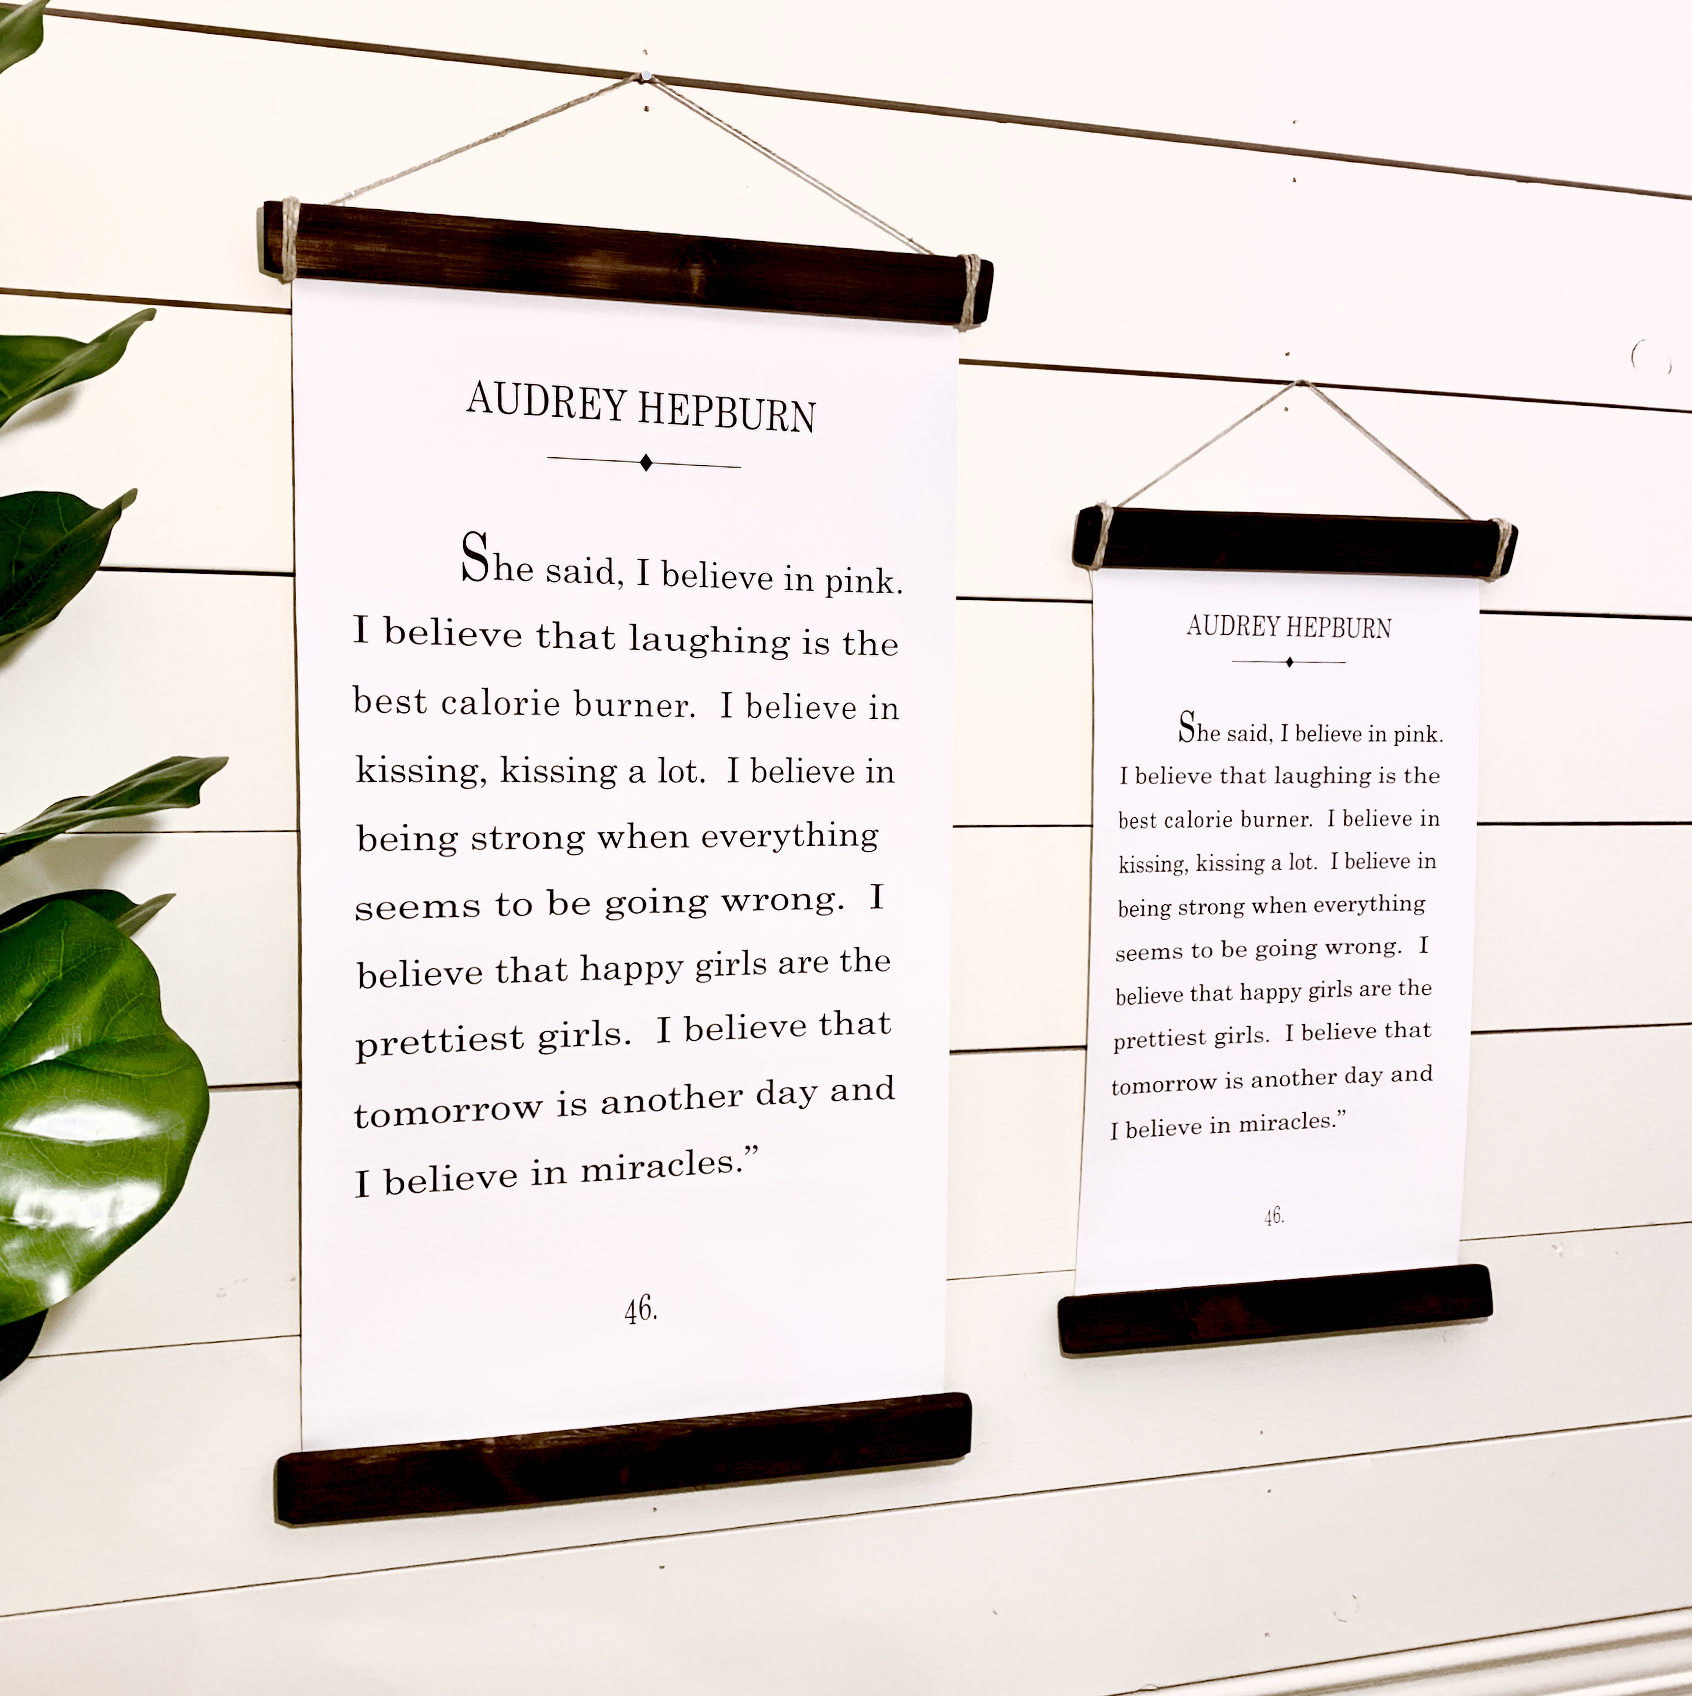 AUDREY HEPBURN
She said, I believe in pink.
I believe that laughing is the
best calorie burner. I believe in
kissing, kissing a lot. I believe in
being strong when everything
seems to be going wrong. I
believe that happy girls are the
prettiest girls. I believe that
tomorrow is another day and
I believe in miracles.”
46.
AUDREY HEPBURN
She said, I believe in pink.
I believe that laughing is the
best calorie burner. I believe in
kissing, kissing a lot. I believe in
being strong when everything
seems to be going wrong. I
believe that happy girls are the
prettiest girls. I believe that
tomorrow is another day and
I believe in miracles.”
46.